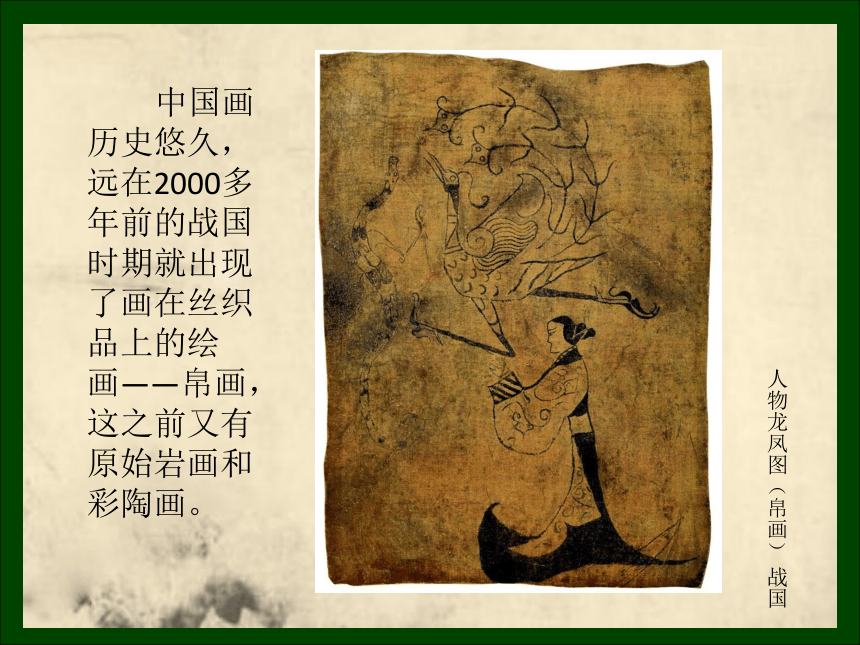 中国画
历史悠久，
远在2000多
年前的战国
时期就出现
了画在丝织
品上的绘
画——帛画，
这之前又有
原始岩画和
彩陶画。
人物龙凤图（帛画） 战国